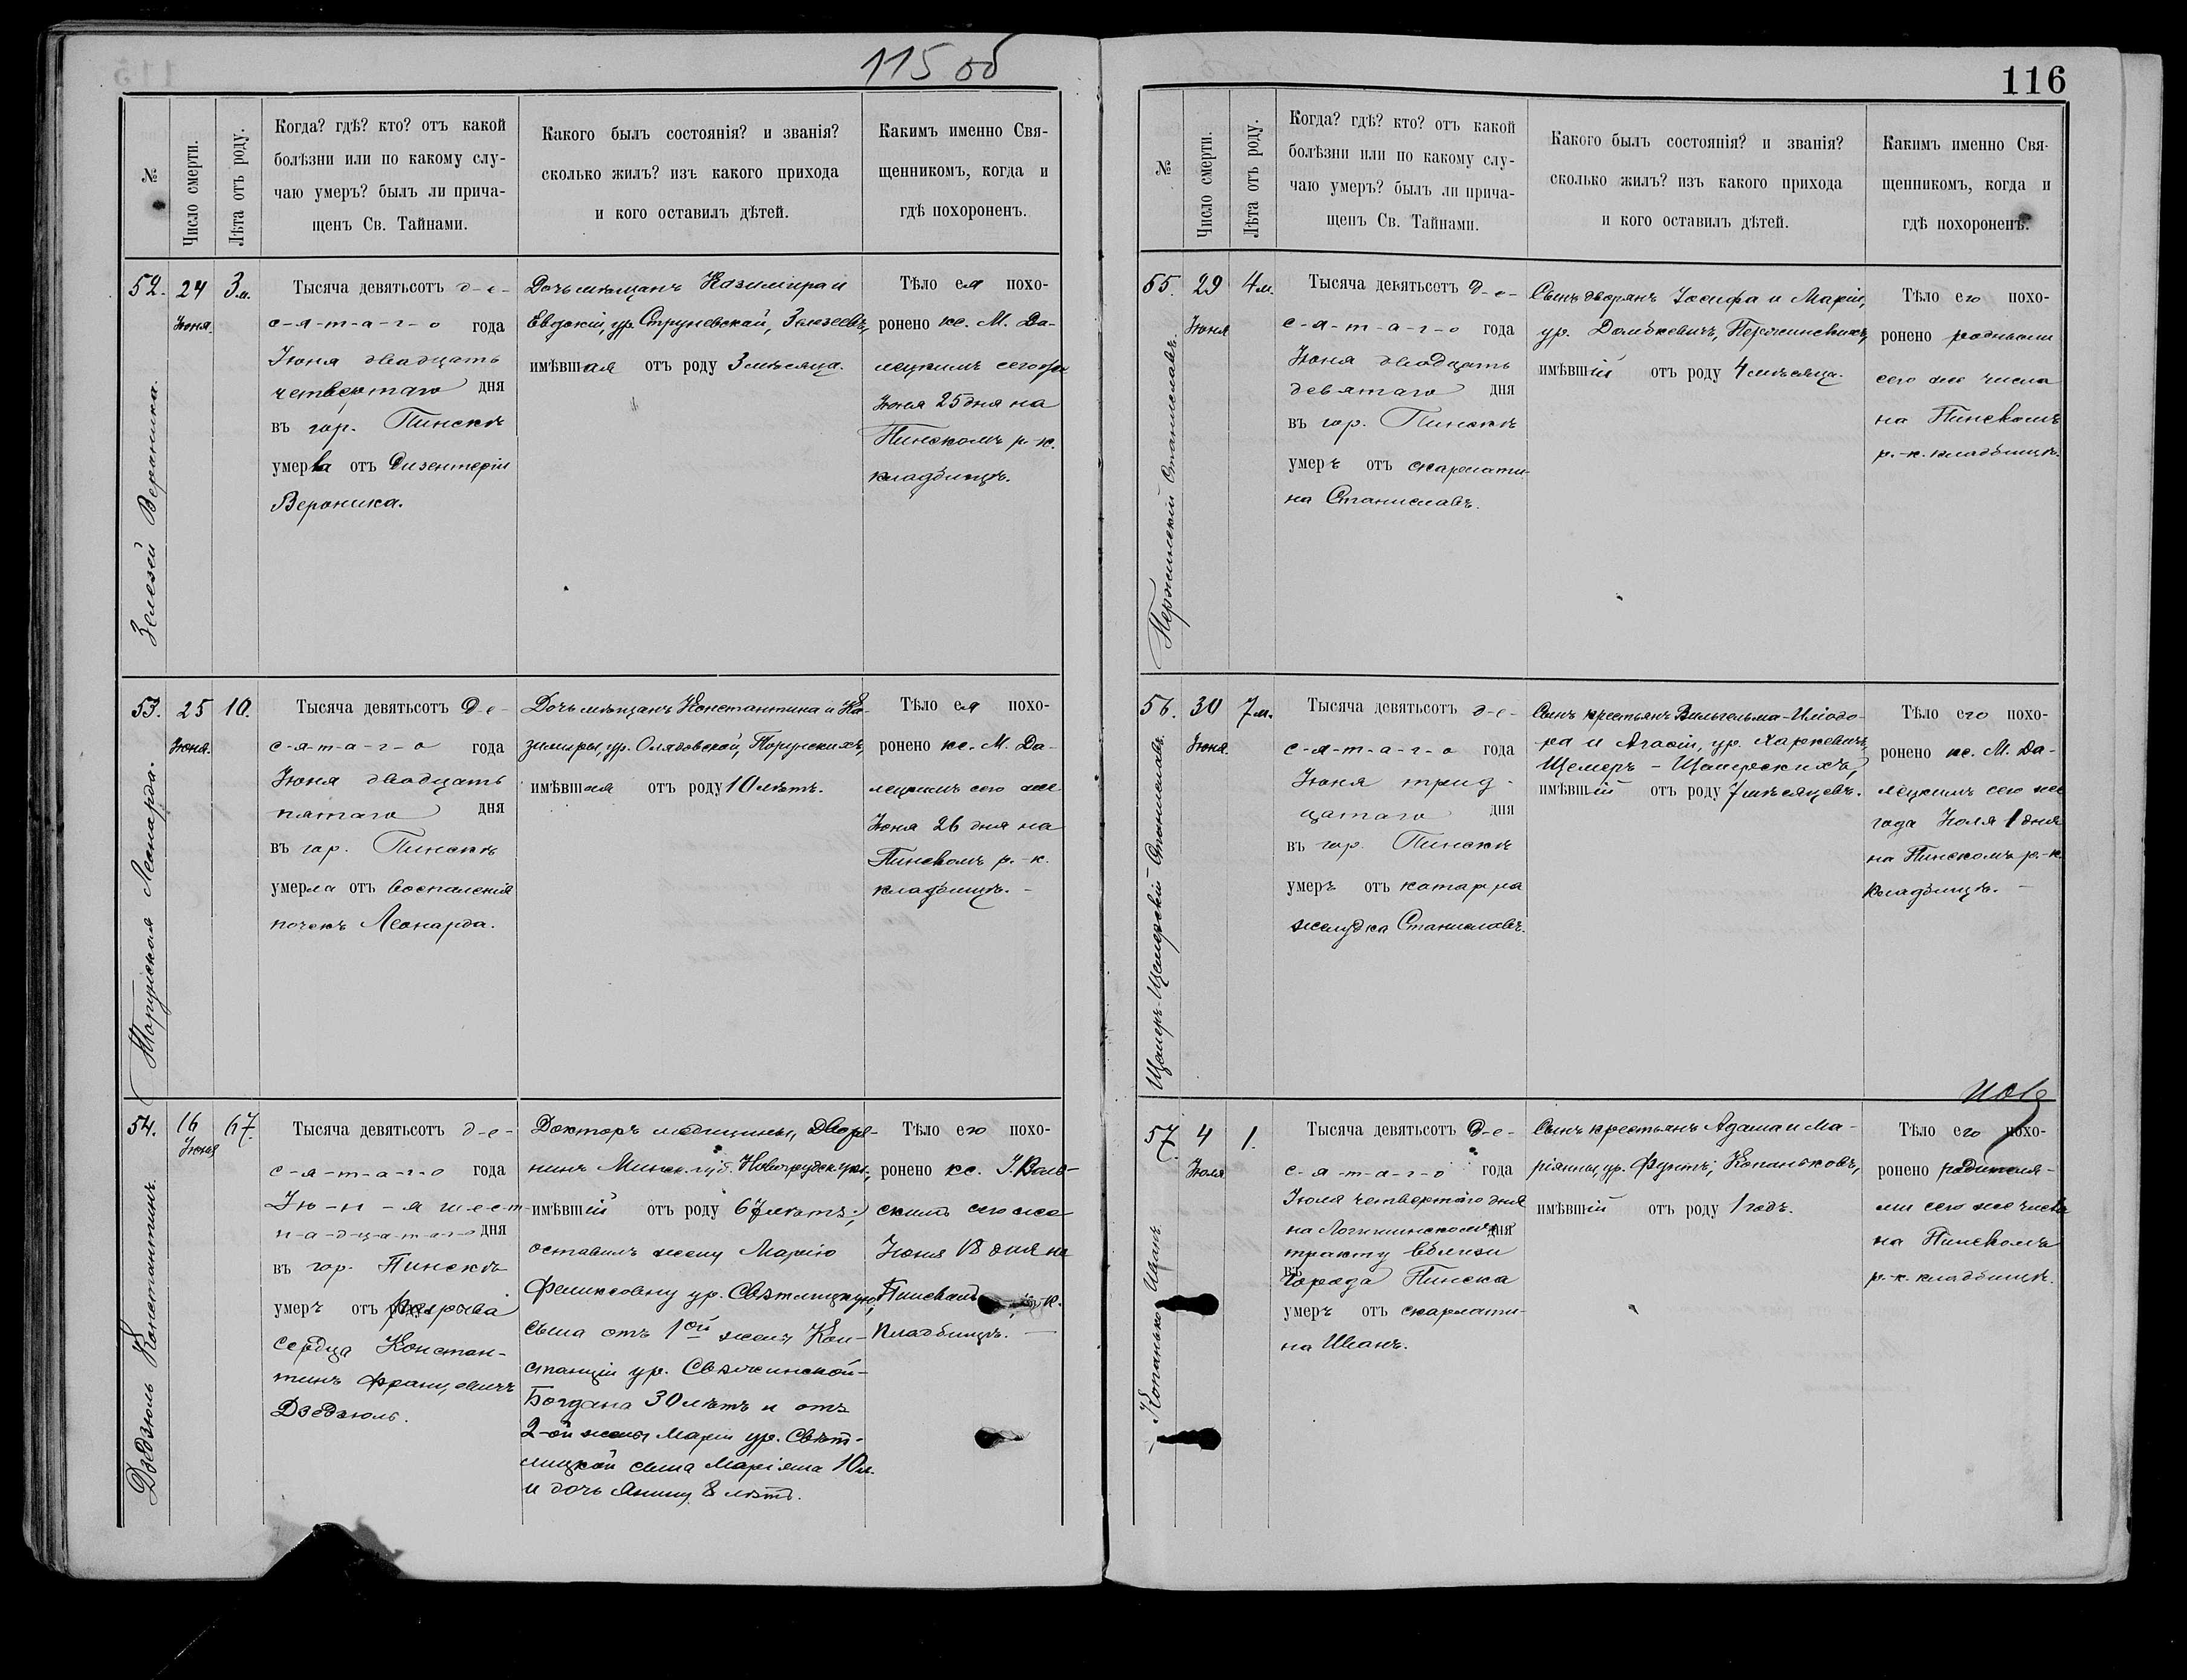 115 об
№
Число смерти.
Лѣта отъ роду.
Когда? гдѣ? кто? отъ какой
болѣзни или по какому слу-
чаю умеръ? былъ ли прича-
щенъ Св. Тайнами.
Какого былъ состоянія? и званія?
сколько жилъ? изъ какого прихода
и кого оставилъ дѣтей.
Какимъ именно Свя-
щенникомъ, когда и
гдѣ похороненъ.
52.
24
Іюня.
3 м.
Вероника.
Тысяча девятьсотъ д-е-
с-я-т-а-г-о года
Іюня двадцать
четвертаго дня
въ гор. Пинскѣ
умерла отъ дизентеріи
Вероника.
Дочь мѣщанъ Казиміра и
ур. Струневской,
имѣвшая отъ роду 3 мѣсяца.
Тѣло ея похо-
ронено кс. М. Да-
лецкимъ сего
Іюня 25 дня на
Пинскомъ р.-к.
кладбищѣ.
53.
25
Іюня.
10.
Торунская Леонарда.
Тысяча девятьсотъ д-е-
с-я-т-а-г-о года
Іюня двадцать
пятаго дня
въ гор. Пинскѣ
умерла отъ воспаленія
почекъ Леонарда.
Дочь мѣщанъ Константина и Ка-
зимиры, ур. Олядовской, Торунскихъ,
имѣвшая отъ роду 10 лѣтъ.
Тѣло ея похо-
ронено кс. М. Да-
лецкимъ сего же
Іюня 26 дня на
Пинскомъ р.-к.
кладбищѣ. –
54.
16
Іюня
67.
Дзедзюль Константинъ.
Тысяча девятьсотъ д-е-
с-я-т-а-г-о года
Ію-н-я шест-
н-а-д-ц-а-т-а-го дня
въ гор. Пинскѣ
умеръ отъ разрыва
сердца Констан-
тинъ Францовичъ
Дзедзюль.
Докторъ медицины, дворя-
нинъ Минск. губ. Новогрудск. уѣз.,
имѣвшій отъ роду 67 лѣтъ;
оставилъ жену Марію
Феликсовну ур. Свѣтлицкую,
сына отъ 1ой жены Кон-
станціи ур. Свѣжинской –
Богдана 30 лѣтъ и отъ
2-ой жены Маріи ур. Свѣт-
лицкой сына Маріяна 10 л.
и дочь Янину 8 лѣтъ.
Тѣло его похо-
ронено кс. І. Валь-
скимъ сего же
Іюня 18 дня на
Пинскомъ к.
кладбищѣ. –
116
№
Число смерти.
Лѣта отъ роду.
Когда? гдѣ? кто? отъ какой
болѣзни или по какому слу-
чаю умеръ? былъ ли прича-
щенъ Св. Тайнами.
Какого былъ состоянія? и званія?
сколько жилъ? изъ какого прихода
и кого оставилъ дѣтей.
Какимъ именно Свя-
щенникомъ, когда и
гдѣ похороненъ.
55.
29
Іюня
4 м.
Пержинскій Станиславъ.
Тысяча девятьсотъ д-е-
с-я-т-а-г-о года
Іюня двадцать
девятаго дня
въ гор. Пинскѣ
умеръ отъ скарлати-
на Станиславъ.
Сынъ дворянъ Іосифа и Маріи,
ур. Домбкевичъ, Пержинскихъ,
имѣвшій отъ роду 4 мѣсяца.
Тѣло его похо-
ронено родными
сего же числа
на Пинскомъ
р.-к. кладбищѣ.
56.
30
Іюня.
7 м.
Станиславъ.
Тысяча девятьсотъ д-е-
с-я-т-а-г-о года
Іюня трид-
цатаго дня
въ гор. Пинскѣ
умеръ отъ катарра
желудка Станиславъ.
Сынъ крестьянъ Вильгельма-Иліодо-
ра и Агасіи, ур. Харкевичъ,
имѣвшій отъ роду 7 мѣсяцевъ.
Тѣло его похо-
ронено кс. М. Да-
лецкимъ сего же
года Іюля 1 дня
на Пинскомъ р.-к.
кладбищѣ. –
57.
4
Іюля
1.
Копанько Иванъ.
Тысяча девятьсотъ д-е-
с-я-т-а-г-о года
Іюля четвертаго дня
на Логишинскомъ дня
тракту вблизи
въ
города Пинска
умеръ отъ скарлати-
на Иванъ.
Сынъ крестьянъ Адама и Ма-
ріанны, ур. Фунтъ, Копаньковъ,
имѣвшій отъ роду 1 годъ.
Тѣло его похо-
ронено родителя-
ми сего же числа
на Пинскомъ
р.-к. кладбищѣ.